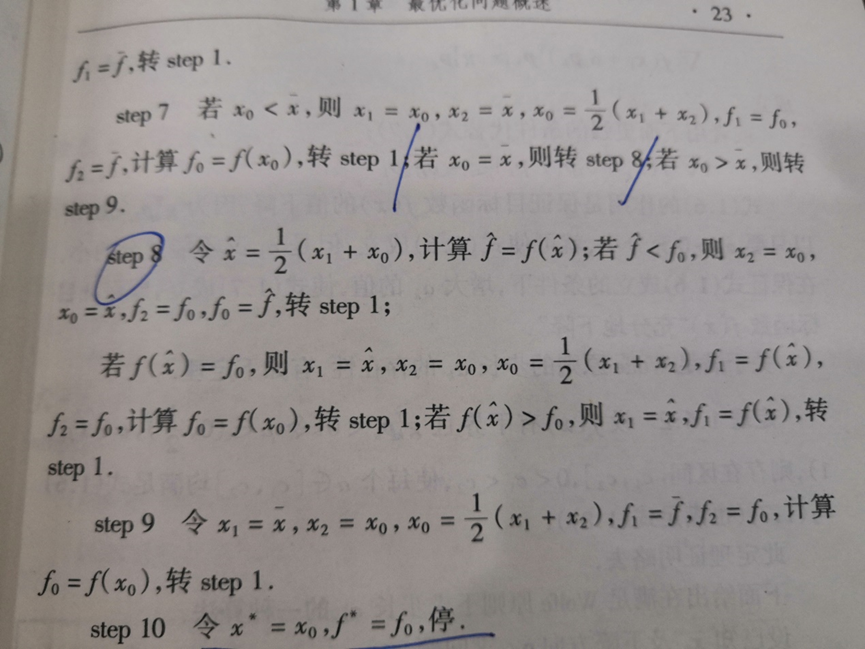 第1章 最优化问题概述 · 23 ·
f₁ = f̄,转 step 1.
step 7 若 x₀ < x̄,则 x₁ = x₀, x₂ = x̄, x₀ = 1/2(x₁ + x₂), f₁ = f₀,
f₂ = f̄,计算 f₀ = f(x₀),转 step 1;若 x₀ = x̄,则转 step 8;若 x₀ > x̄,则转
step 9.
step 8 令 x̂ = 1/2(x₁ + x₀),计算 f̂ = f(x̂);若 f̂ < f₀,则 x₂ = x₀,
x₀ = x̂, f₂ = f₀, f₀ = f̂,转 step 1;
若 f(x̂) = f₀,则 x₁ = x̂, x₂ = x₀, x₀ = 1/2(x₁ + x₂), f₁ = f(x̂),
f₂ = f₀,计算 f₀ = f(x₀),转 step 1;若 f(x̂) > f₀,则 x₁ = x̂, f₁ = f(x̂),转
step 1.
step 9 令 x₁ = x̄, x₂ = x₀, x₀ = 1/2(x₁ + x₂), f₁ = f̄, f₂ = f₀,计算
f₀ = f(x₀),转 step 1.
step 10 令 x* = x₀, f* = f₀,停.